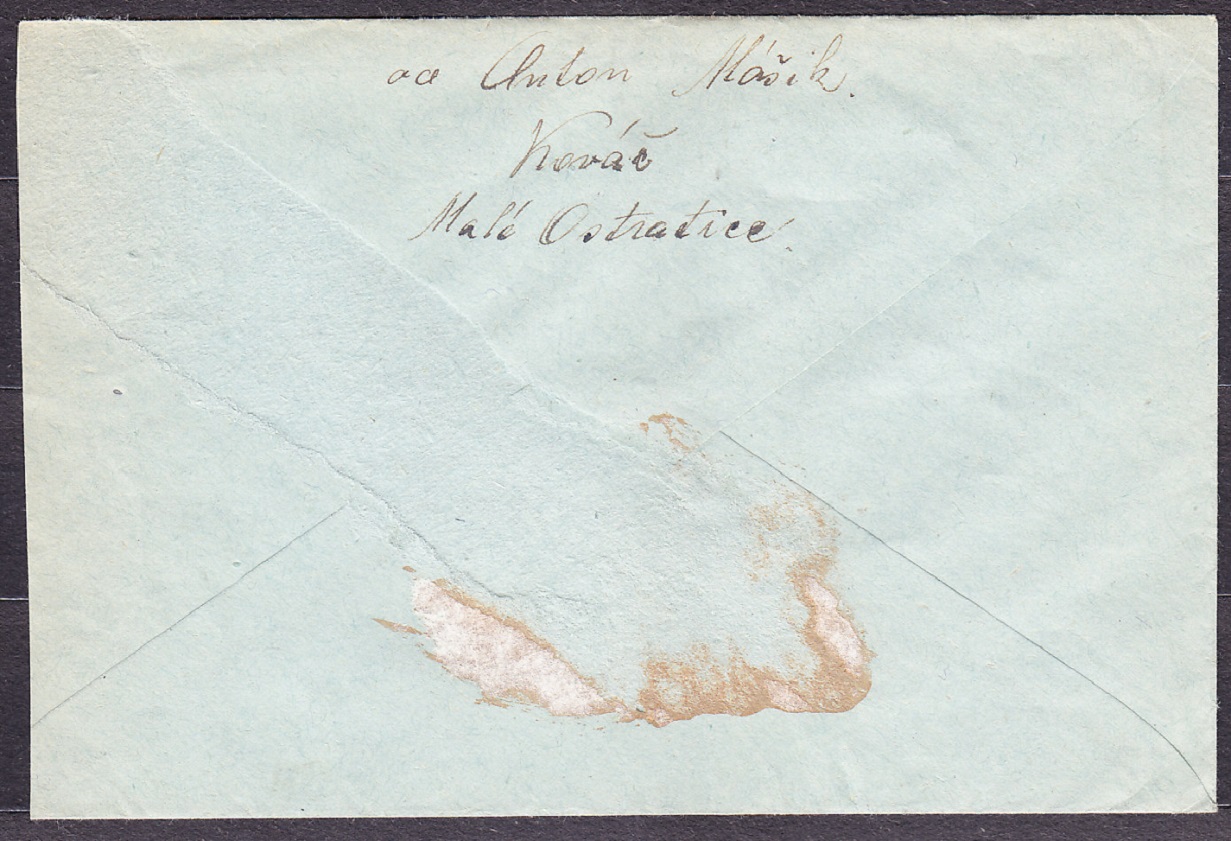 od Anton Mášik.
Kováč
Malé Ostratice.